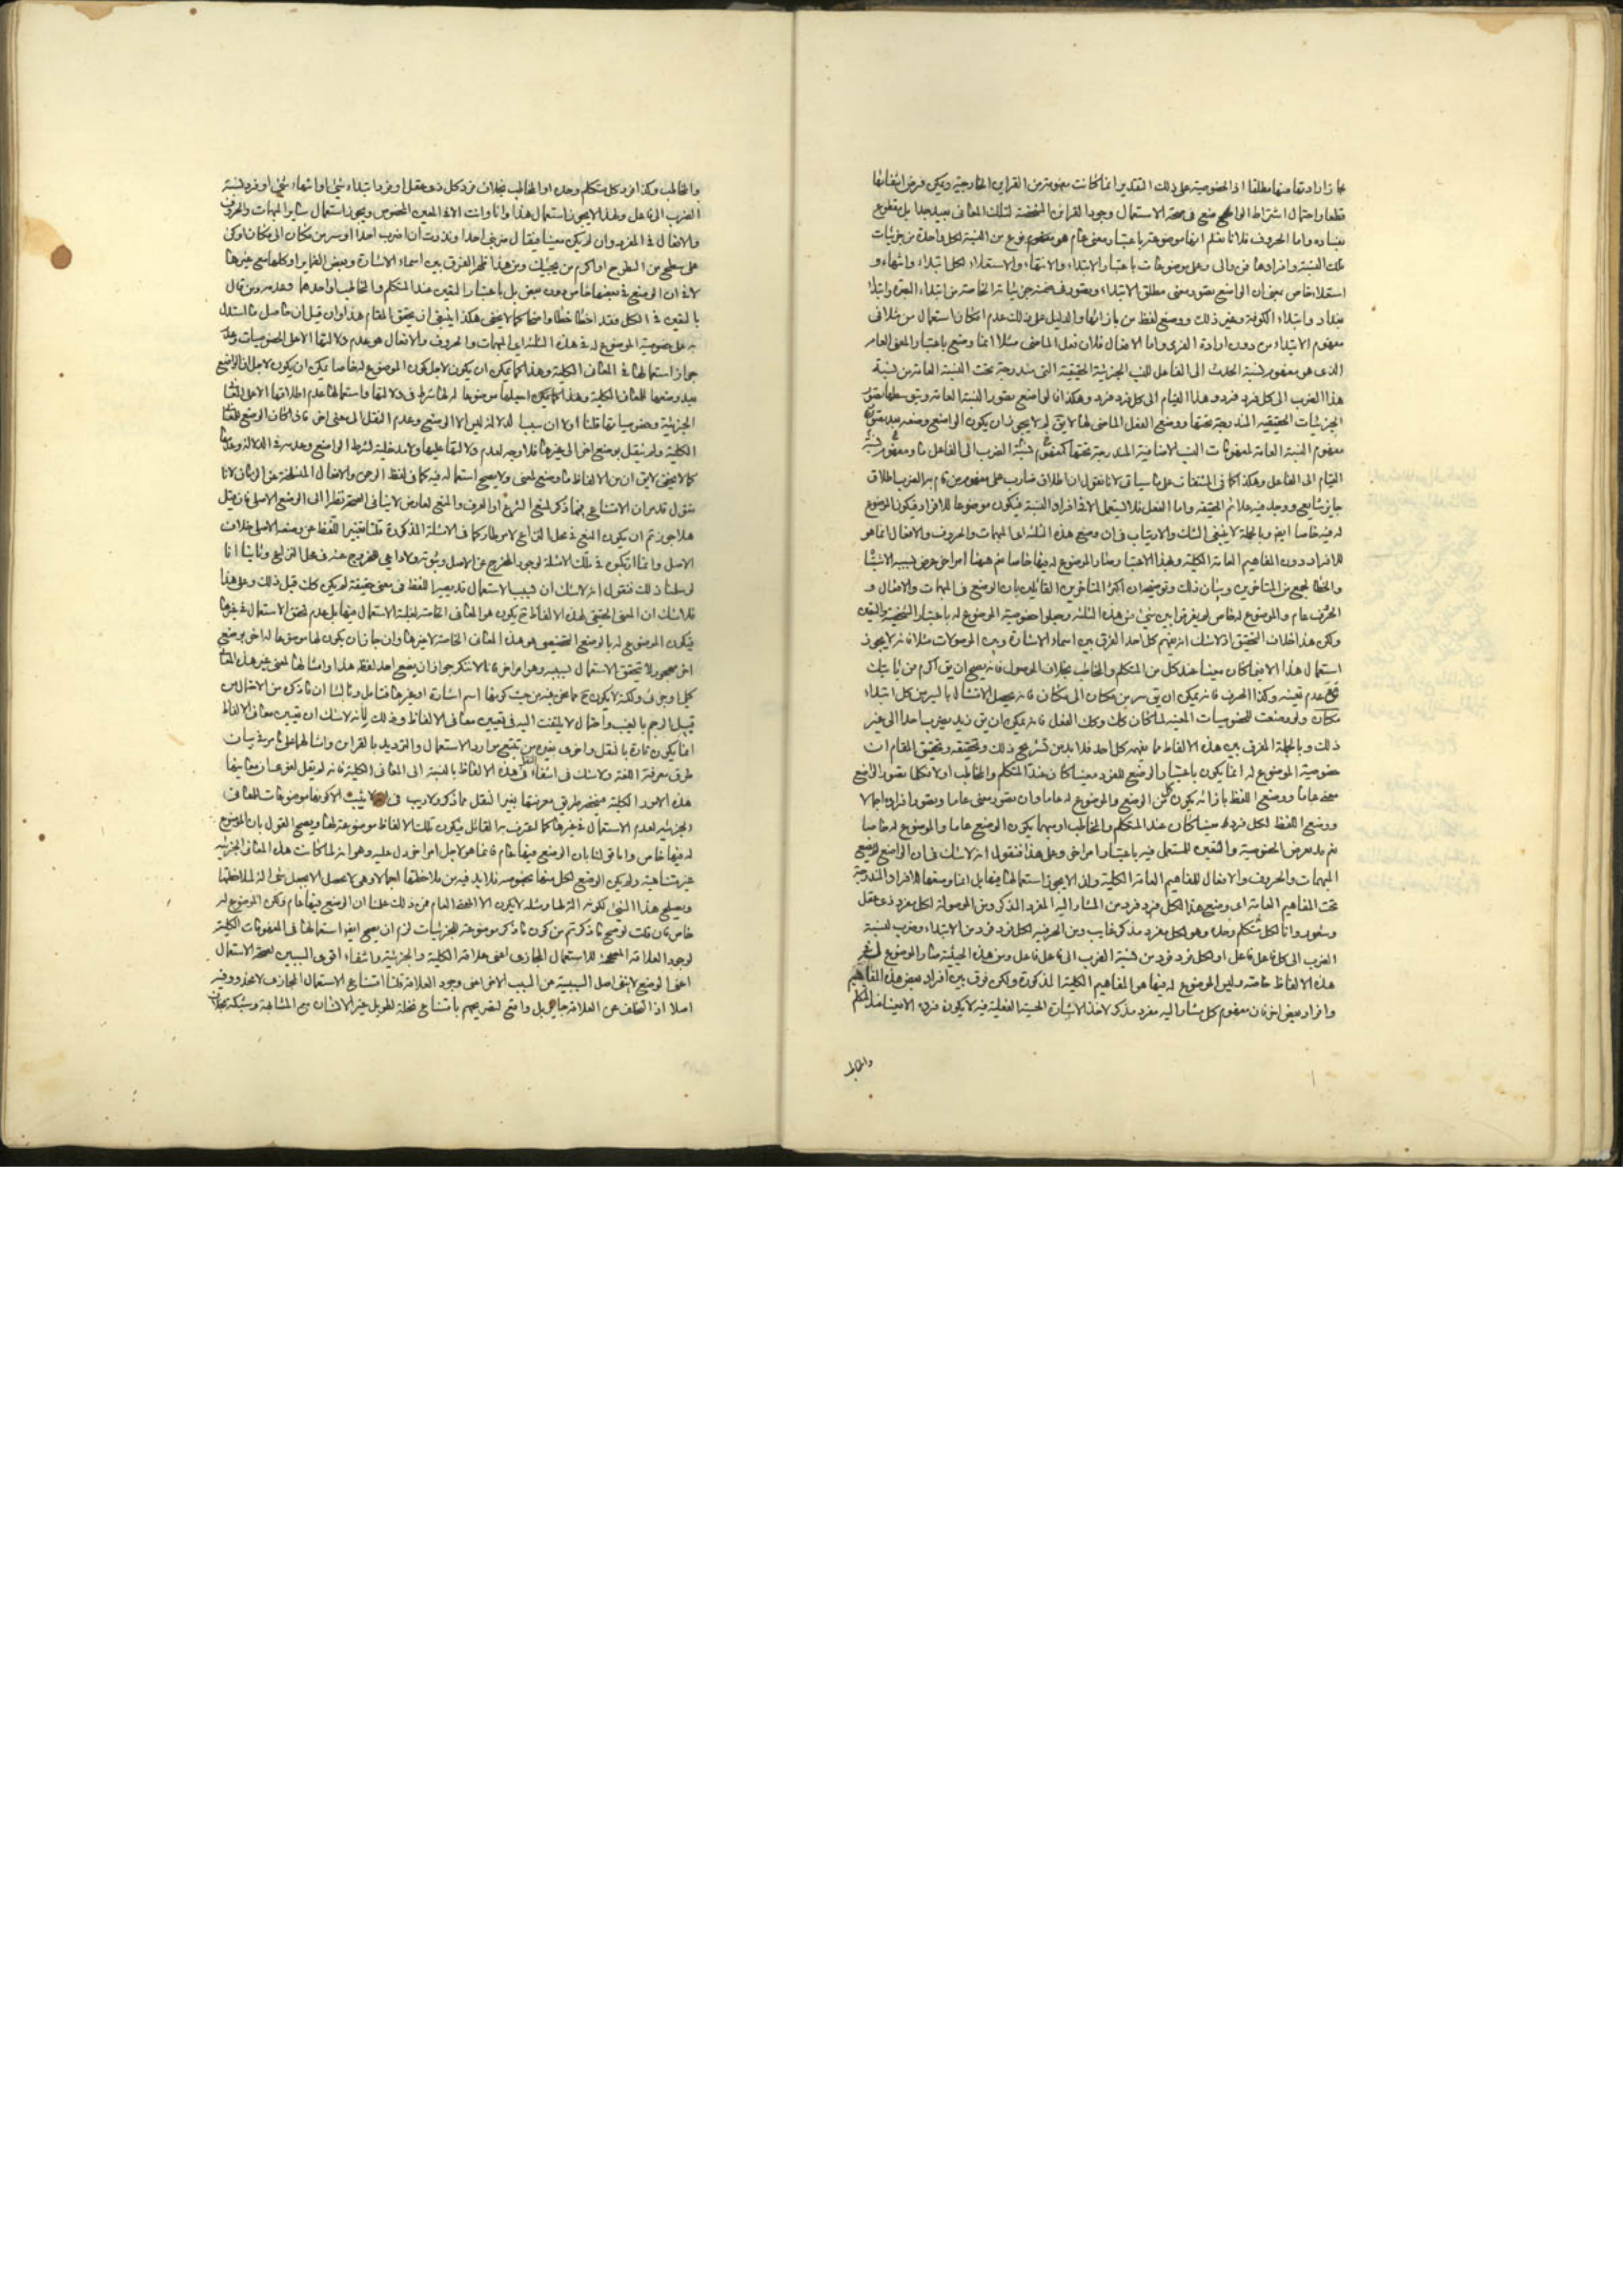 قطعا واحتمال اشتراط الواضع في صحة الاستعمال وجود القراين المشخصة لتلك المعاني بعيد جدا بل مقطوع
بفساده واما الحروف فلانا نعلم انها موضوعة باعتبار معنى عام هو مفهوم نوع من النسبة لكل واحدة من جزئيات
تلك النسبة وافرادها فمن والى وعلى موضوعات باعتبار الابتداء والانتهاء والاستعلاء لكل ابتداء وانتهاء و
استعلاء خاص بمعنى ان الواضع تصور معنى مطلق الابتداء وتصور في ضمنه جزئياته الخاصة من ابتداء البصرة وابتداء
بغداد وابتداء الكوفة وغير ذلك ووضع لفظ من بازائها والدليل على ذلك عدم امكان استعمال من مثلا في
مفهوم الابتداء من دون ارادة الفرد واما الافعال فلان فعل الماضي مثلا انما وضع باعتبار المعنى العام
الذي هو مفهوم نسبة الحدث الى الفاعل للنسب الجزئية الحقيقية التي مندرجة تحت النسبة العامة من نسبة
هذا الضرب الى كل فرد فرد وهذا القيام الى كل فرد فرد وهكذا فالواضع تصور النسبة العامة
الجزئيات الحقيقية المندرجة تحتها ووضع الفعل الماضي لها لا يق لم لا يجوز ان يكون الواضع وضعه بعد تصور
مفهوم النسبة العامة لمفهومات النسب الاضافية المندرجة تحتها كمفهوم نسبة الضرب الى الفاعل ومفهوم نسبة
القيام الى الفاعل وهكذا كما في المشتقات على ما سياتي لانا نقول ان اطلاق ضارب على مفهوم من قام به الضرب اطلاق
جايز شايع ووجد فيه علائم الحقيقة واما الفعل فلا يستعمل الا في افراد النسبة فيكون موضوعا للافراد فيكون الموضوع
له فيه خاصا ايضا وبالجملة لا ينبغي الشك والارتياب في ان وضع هذه الثلثة اي المبهمات والحروف والافعال انما هو
للافراد دون المفاهيم العامة الكلية وبهذا الاعتبار صار الموضوع له فيها خاصا نعم ههنا امر اخر عرض بسببه الاشتباه
والخطا لجمع من المتاخرين وبيان ذلك وتوضيحه ان اكثر المتاخرين القائلين بان الوضع في المبهمات والافعال و
الحروف عام والموضوع له خاص لم يفرقوا بين شيء من هذه الثلثة وجعلوا خصوصية الموضوع له باعتبار الشخصية والتعين
ولكن هذا خلاف التحقيق اذ لا شك انه يفهم كل احد الفرق بين اسماء الاشارة وبين الموصولات مثلا فانه لا يجوز
استعمال هذا الا فيما كان معينا عند كل من المتكلم والمخاطب بخلاف الموصول فانه يصح ان يق اكرم من ياتيك
مع عدم تعينه وكذا الحرف فانه يمكن ان يق سر من مكان الى مكان فانه يحصل الامتثال بالسير من كل ابتداء
مكان ولو وضعت للخصوصيات المعينة لما كان كك وكك الفعل فانه يمكن ان يق زيد يضرب احدا الى غير
ذلك وبالجملة الفرق بين هذه الالفاظ مما يفهمه كل احد فلا بد من تشريح ذلك وتحقيقه وتحقيق المقام ان
خصوصية الموضوع له انما يكون باعتبار الوضع للفرد معينا كان عند المتكلم والمخاطب او لا فكلما تصور الواضع
معنى عاما ووضع اللفظ بازائه يكون كل من الوضع والموضوع له عاما وان تصور معنى عاما وتصور افراده اجمالا
ووضع اللفظ لكل فرد فرد معينا كان عند المتكلم والمخاطب او مبهما يكون الوضع عاما والموضوع له خاصا
ثم قد يعرض الخصوصية والتعين للمستعمل فيه باعتبار امر اخر وعلى هذا فنقول انه لا شك في ان الواضع لم يضع
المبهمات والحروف والافعال للمفاهيم العامة الكلية ولذا لا يجوز استعمالها فيها بل انما وضعها للافراد المندرجة
تحت المفاهيم العامة اي وضع هذا لكل فرد فرد من المشار اليه المفرد المذكر ومن الموصولة لكل فرد ذي عقل
وشعور وانا لكل متكلم وحده وهو لكل مفرد مذكر غايب ومن الحرفية لكل فرد فرد من الابتداء وضرب لنسبة
الضرب الى كل فاعل فاعل او لكل فرد فرد من نسبة الضرب الى فاعل فاعل ومن هذه الحيثية صار الموضوع له في
هذه الالفاظ خاصة وليس الموضوع له فيها هو المفاهيم الكلية المذكورة ولكن فرق بين افراد بعض هذه المفاهيم
وافراد بعض اخر فان مفهوم كل مشار اليه مفرد مذكر لاخذ الاشارة الحسية الفعلية فيه لا يكون فرده الا معينا عند المتكلم
والمخاطب
والمخاطب وكذا فرد كل متكلم وحده او المخاطب بخلاف فرد كل ذي عقل او فرد ابتداء شيء او انتهاء شيء او فرد نسبة
الضرب الى فاعل ولهذا لا يجوز استعمال هذا وانا وانت الا في المعين المخصوص ويجوز استعمال ساير المبهمات والحروف
والافعال في المفرد وان لم يكن معينا فيقال ضربني احد او نذرت ان اضرب احدا او سر من مكان الى مكان او كن
على سطح من السطوح او اكرم من يجيئك ومن هذا ظهر الفرق بين اسماء الاشارة وبعض الضماير او كلها مع غيرها
لا في ان الوضع في بعضها خاص دون بعض بل باعتبار التعين عند المتكلم والمخاطب او احدهما وعدمه ومن قال
بالتعين في الكل فقد اخطا خطا واضحا كما لا يخفى هكذا ينبغي ان يحقق المقام هذا وان قيل ان حاصل ما استدل
به على خصوصية الموضوع له في هذه الثلثة اي المبهمات والحروف والافعال هو عدم دلالتها الا على الخصوصيات وعدم
جواز استعمالها في المعاني الكلية وهذا كما يمكن ان يكون لاجل كون الموضوع له خاصا يمكن ان يكون لاجل ان الواضع
الجزئية وخصوصياتها قلنا اولا ان سبب الدلالة ليس الا الوضع وعدم النقل الى معنى اخر فاذا كان الوضع للمعاني
الكلية ولم ينقل بوضع اخر الى غيرها فلا وجه لعدم دلالتها عليها ولا مدخلية لشرط الواضع وعدمه في الدلالة وعدمها
كما لا يخفى لا يق ان من الالفاظ ما وضع لمعنى ولا يصح استعماله فيه كما في لفظ الرحمن والافعال المنسلخة عن الزمان لانا
نقول قد مر ان الامتناع فيما ذكر لمنع الشرع او العرف والمنع لعارض لا ينافي الصحة نظرا الى الوضع الاصلي فان قيل
هلا جوزتم ان يكون المنع في محل النزاع لامر طار كما في الامثلة المذكورة قلنا تغيير اللفظ عن وضعه الاصلي خلاف
الاصل وانما ارتكبوه في تلك الامثلة لوجود المخرج عن الاصل وثبوته ولا داعي للخروج عنه في محل النزاع وثانيا انا
لو سلمنا ذلك فنقول انه لا شك ان بسبب الاستعمال قد يصير اللفظ في معنى حقيقة لم يكن كك قبل ذلك وعلى هذا
فلا شك ان المعنى الحقيقي لهذه الالفاظ ثم يكون هو المعاني الخاصة لغلبة الاستعمال فيها بل عدم تحقق الاستعمال في غيرها
فيكون الموضوع له بالوضع التخصصي هو هذه المعاني الخاصة لا غيرها وان جاز ان يكون لها موضوعا له اخر بوضع
اخر مهجور لا يتحقق الاستعمال بسببه وهو امر اخر فانا لا ننكر جواز ان يضع احد لفظ هذا وامثالها لمعنى غير هذه المعاني
قبيل الرجم بالغيب واحتمال لا يلتفت اليه في تعيين معاني الالفاظ وذلك لانه لا شك ان تعيين معاني الالفاظ
انما يكون تارة بالنقل واخرى بغيره من تتبع موارد الاستعمال والترديد بالقراين وامثالها على ما مر في بيان
طرق معرفة اللغة ولا شك في انتفاء النقل في هذه الالفاظ بالنسبة الى المعاني الكلية فانه لم يقل لغوي ان معانيها
هذه الامور الكلية فينحصر طريق معرفتها بغير النقل مما ذكر ولا ريب في انه لا يثبت الا كونها موضوعات للمعاني
الجزئية لعدم الاستعمال في غيرها كما اعترف به القائل فيكون تلك الالفاظ موضوعة لها ويصح القول بان الموضوع
له فيها خاص واما قولنا بان الوضع فيها عام فانما هو لاجل امر اخر دل عليه وهو انه لما كانت هذه المعاني الجزئية
غير متناهية ولم يكن الوضع لكل منها بخصوصه فلا بد فيه من ملاحظتها اجمالا وهي لا يحصل الا بجعل شيء الة لملاحظتها
ويصلح هذا الشيء لكونه الة لها ومثله لا يكون الا المعنى العام فمن ذلك علمنا ان الوضع فيها عام ولكن الموضوع له
خاص فان قلت لو صح ما ذكرتم من كون ما ذكر موضوعة للجزئيات لزم ان يصح ايضا استعمالها في المفهومات الكلية
لوجود العلاقة المصححة للاستعمال المجازي اعني علاقة الكلية والجزئية وانتفاء اقوى السببين لصحة الاستعمال
اعني الوضع لا ينفي اصل السببية عن السبب الاخر اعني وجود العلاقة قلنا امتناع الاستعمال المجازي لا محذور فيه